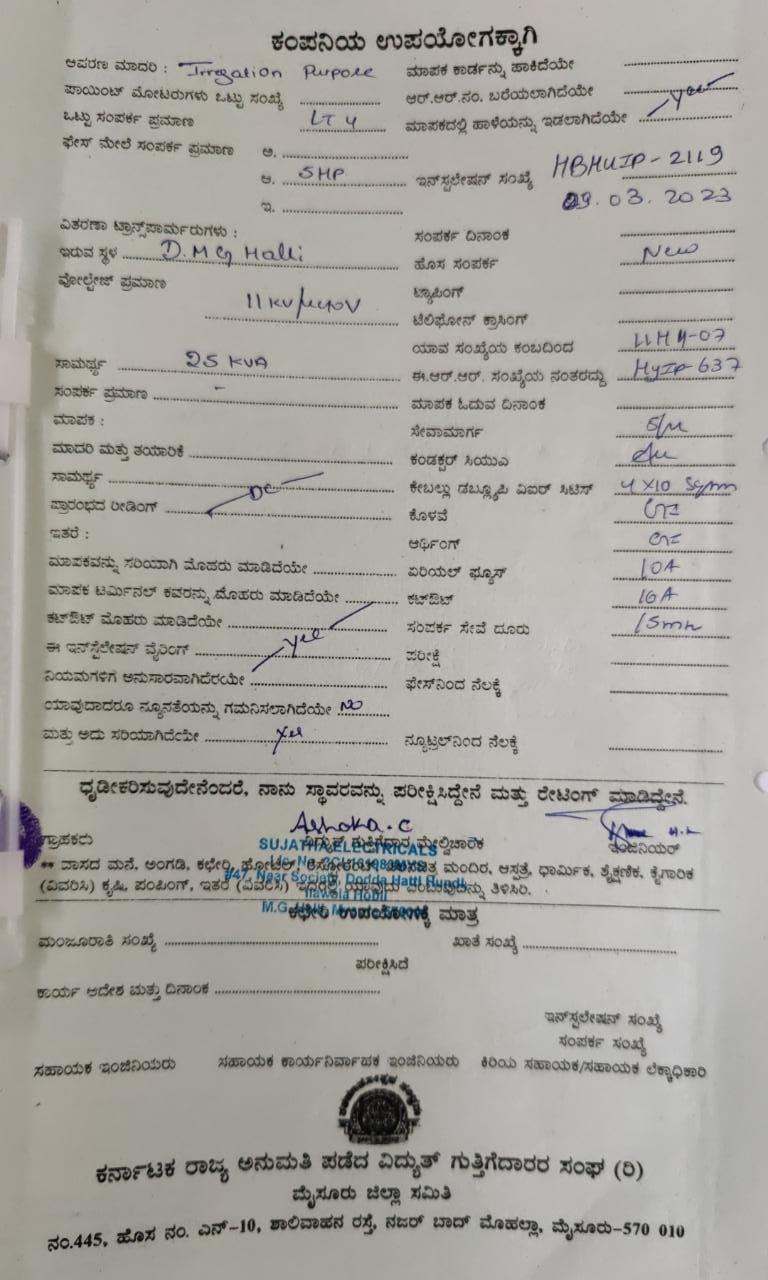 ಕಂಪನಿಯ ಉಪಯೋಗಕ್ಕಾಗಿ
ಆವರಣ ಮಾದರಿ : Irregation Purpose ಮಾಪಕ ಕಾರ್ಡನ್ನು ಹಾಕಿದೆಯೇ
ಪಾಯಿಂಟ್ ಮೋಟರುಗಳು ಒಟ್ಟು ಸಂಖ್ಯೆ ಆರ್.ಆರ್.ನಂ. ಬರೆಯಲಾಗಿದೆಯೇ
ಒಟ್ಟು ಸಂಪರ್ಕ ಪ್ರಮಾಣ LT 4 ಮಾಪಕದಲ್ಲಿ ಹಾಳೆಯನ್ನು ಇಡಲಾಗಿದೆಯೇ yes
ಫೇಸ್ ಮೇಲೆ ಸಂಪರ್ಕ ಪ್ರಮಾಣ ಅ.
ಆ. 5HP ಇನ್‌ಸ್ಟಲೇಷನ್ ಸಂಖ್ಯೆ HBHUIP-2119
ಇ. 09.03.2023
ವಿತರಣಾ ಟ್ರಾನ್ಸ್‌ಪಾರ್ಮರುಗಳು : ಸಂಪರ್ಕ ದಿನಾಂಕ
ಇರುವ ಸ್ಥಳ D.M.G Halli ಹೊಸ ಸಂಪರ್ಕ New
ವೋಲ್ಟೇಜ್ ಪ್ರಮಾಣ 11KV ಟ್ಯಾಪಿಂಗ್
ಟೆಲಿಫೋನ್ ಕ್ರಾಸಿಂಗ್
ಯಾವ ಸಂಖ್ಯೆಯ ಕಂಬದಿಂದ
ಸಾಮರ್ಥ್ಯ 25 KVA ಈ.ಆರ್.ಆರ್. ಸಂಖ್ಯೆಯ ನಂತರದ್ದು HyIP-637
ಸಂಪರ್ಕ ಪ್ರಮಾಣ - ಮಾಪಕ ಓದುವ ದಿನಾಂಕ
ಮಾಪಕ : ಸೇವಾಮಾರ್ಗ
ಮಾದರಿ ಮತ್ತು ತಯಾರಿಕೆ ಕಂಡಕ್ಟರ್ ಸಿಯುಎ
ಸಾಮರ್ಥ್ಯ DC ಕೇಬಲ್ಲು ಡಬ್ಲ್ಯೂಪಿ ವಿಐರ್ ಸಿಟಿಸ್ 4X10 Sqmm
ಪ್ರಾರಂಭದ ರೀಡಿಂಗ್ ಕೊಳವೆ GI
ಇತರೆ : ಆರ್ಥಿಂಗ್ GI
ಮಾಪಕವನ್ನು ಸರಿಯಾಗಿ ಮೊಹರು ಮಾಡಿದೆಯೇ ಏರಿಯಲ್ ಫ್ಯೂಸ್ 10A
ಮಾಪಕ ಟರ್ಮಿನಲ್ ಕವರನ್ನು ಮೊಹರು ಮಾಡಿದೆಯೇ ಕಟ್‌ಔಟ್ 16A
ಕಟ್‌ಔಟ್ ಮೊಹರು ಮಾಡಿದೆಯೇ ಸಂಪರ್ಕ ಸೇವೆ ದೂರು 15mtr
ಈ ಇನ್‌ಸ್ಟೆಲೆಷನ್ ವೈರಿಂಗ್ yes ಪರೀಕ್ಷೆ
ನಿಯಮಗಳಿಗೆ ಅನುಸಾರವಾಗಿದೆರಯೇ ಫೇಸ್‌ನಿಂದ ನೆಲಕ್ಕೆ
ಯಾವುದಾದರೂ ನ್ಯೂನತೆಯನ್ನು ಗಮನಿಸಲಾಗಿದೆಯೇ NO
ಮತ್ತು ಅದು ಸರಿಯಾಗಿದೆಯೇ yes ನ್ಯೂಟ್ರಲ್‌ನಿಂದ ನೆಲಕ್ಕೆ
ಧೃಡೀಕರಿಸುವುದೇನೆಂದರೆ, ನಾನು ಸ್ಥಾವರವನ್ನು ಪರೀಕ್ಷಿಸಿದ್ದೇನೆ ಮತ್ತು ರೇಟಿಂಗ್ ಮಾಡಿದ್ದೇನೆ.
Ashoka.C
ಗ್ರಾಹಕರು ವಿದ್ಯುತ್ ಗುತ್ತಿಗೆದಾರ ಮೇಲ್ವಿಚಾರಕ ಇಂಜಿನಿಯರ್
SUJATHA ELECTRICALS
** ವಾಸದ ಮನೆ, ಅಂಗಡಿ, ಕಛೇರಿ, ಹೋಟೆಲ್, ಮಂದಿರ, ಆಸ್ಪತ್ರೆ, ಧಾರ್ಮಿಕ, ಶೈಕ್ಷಣಿಕ, ಕೈಗಾರಿಕ
#47, Near Society, Dodda Hatti Hundi
(ವಿವರಿಸಿ) ಕೃಷಿ, ಪಂಪಿಂಗ್, ಇತರೆ (ವಿವರಿಸಿ) ಇದರಲ್ಲಿ ಯಾವುದು ಎಂಬುವುದನ್ನು ತಿಳಿಸಿರಿ.
ಕಛೇರಿ ಉಪಯೋಗಕ್ಕೆ ಮಾತ್ರ
ಮಂಜೂರಾತಿ ಸಂಖ್ಯೆ ಖಾತೆ ಸಂಖ್ಯೆ
ಪರೀಕ್ಷಿಸಿದೆ
ಕಾರ್ಯ ಅದೇಶ ಮತ್ತು ದಿನಾಂಕ
ಇನ್‌ಸ್ಟಲೇಷನ್ ಸಂಖ್ಯೆ
ಸಂಪರ್ಕ ಸಂಖ್ಯೆ
ಸಹಾಯಕ ಇಂಜಿನಿಯರು ಸಹಾಯಕ ಕಾರ್ಯನಿರ್ವಾಹಕ ಇಂಜಿನಿಯರು ಕಿರಿಯ ಸಹಾಯಕ/ಸಹಾಯಕ ಲೆಕ್ಕಾಧಿಕಾರಿ
ಕರ್ನಾಟಕ ರಾಜ್ಯ ಅನುಮತಿ ಪಡೆದ ವಿದ್ಯುತ್ ಗುತ್ತಿಗೆದಾರರ ಸಂಘ (ರಿ)
ಮೈಸೂರು ಜಿಲ್ಲಾ ಸಮಿತಿ
ನಂ.445, ಹೊಸ ನಂ. ಎನ್-10, ಶಾಲಿವಾಹನ ರಸ್ತೆ, ನಜರ್ ಬಾದ್ ಮೊಹಲ್ಲಾ, ಮೈಸೂರು-570 010